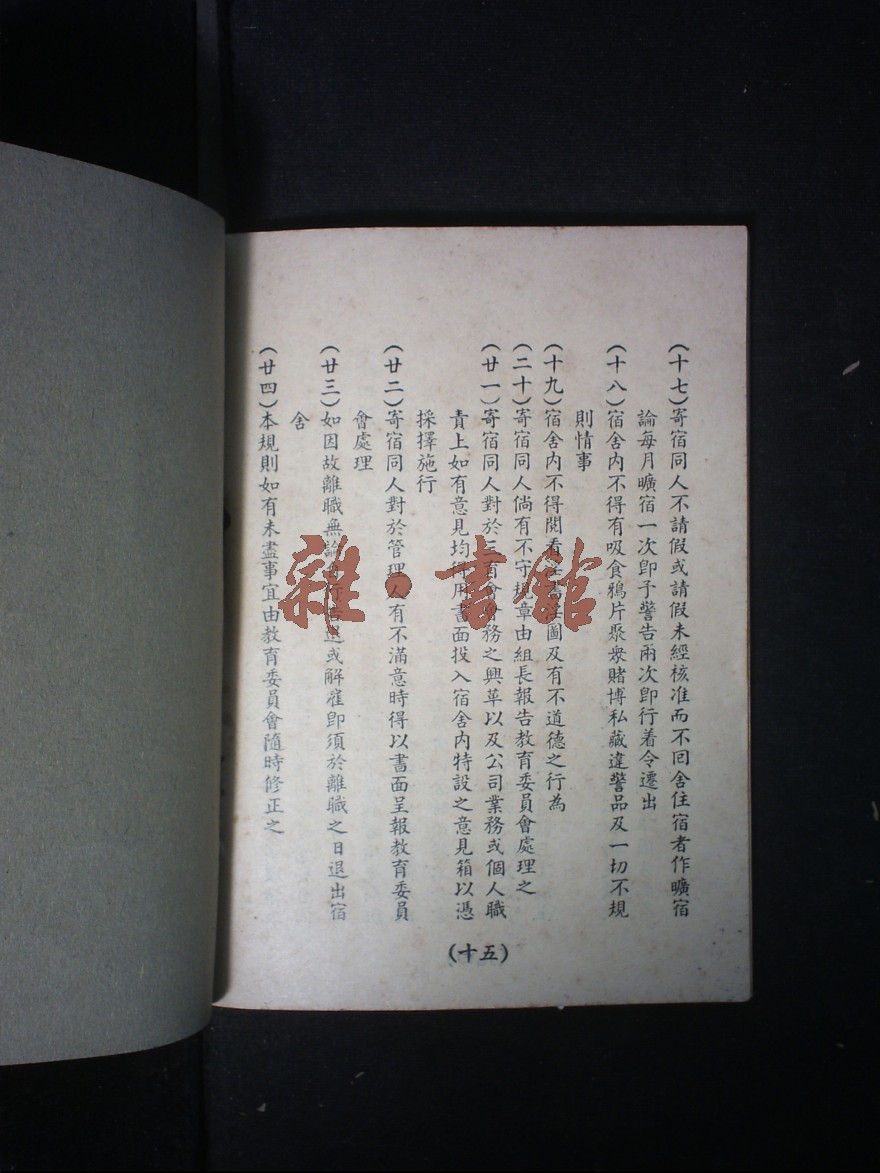 (十七)寄宿同人不請假或請假未經核准而不回舍住宿者作曠宿
論每月曠宿一次卽予警告兩次卽行着令遷出
(十八)宿舍內不得有吸食鴉片聚衆賭博私藏違警品及一切不規
則情事
(十九)宿舍內不得閱看淫書淫圖及有不道德之行為
(二十)寄宿同人倘有不守規章由組長報告教育委員會處理之
(廿一)寄宿同人對於三育會會務之興革以及公司業務或個人職
責上如有意見均得用書面投入宿舍內特設之意見箱以憑
採擇施行
(廿二)寄宿同人對於管理人有不滿意時得以書面呈報教育委員
會處理
(廿三)如因故離職無論自行告退或解雇卽須於離職之日退出宿
舍
(廿四)本規則如有未盡事宜由教育委員會隨時修正之
(十五)
雜·書館